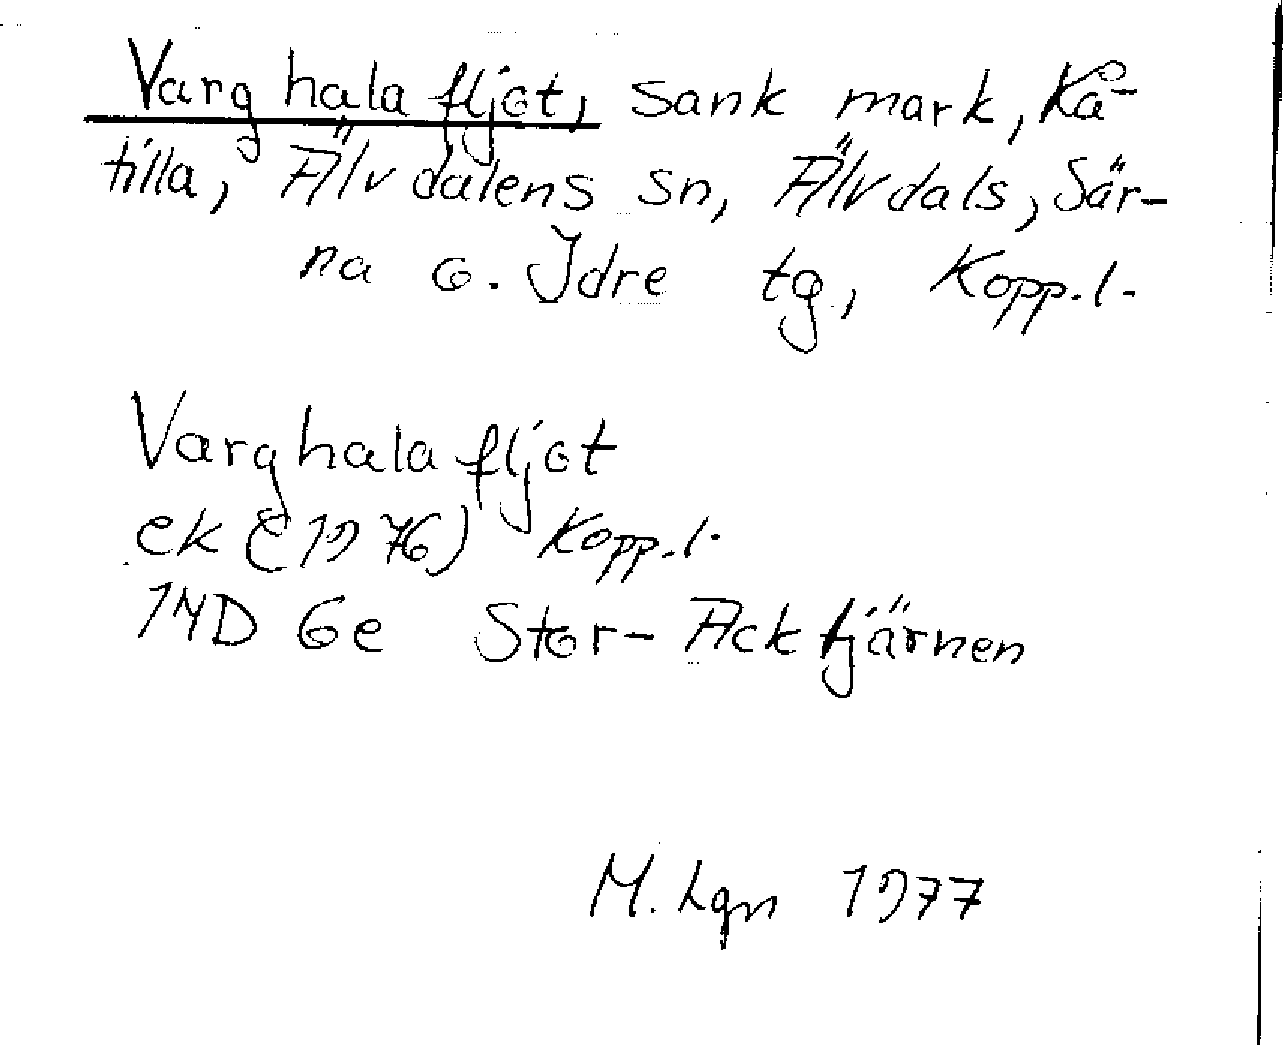 Varghalafljot, sank mark, Kå-
tilla, Älvdalens sn, Älvdals, Sär-
na o. Idre tg, Kopp.l.
Varghalafljot
ek (1976) Kopp.l.
14D 6e Stor-Acktjärnen
M. Lgn 1977